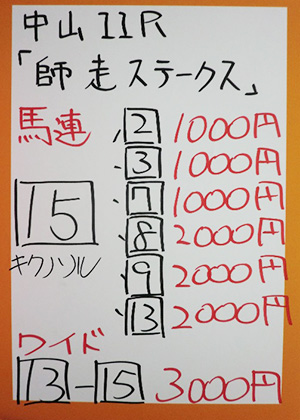 中山11R
「師走ステークス」
馬連
15
キクノソル
2 1000円
3 1000円
7 1000円
8 2000円
9 2000円
13 2000円
ワイド
13-15 3000円